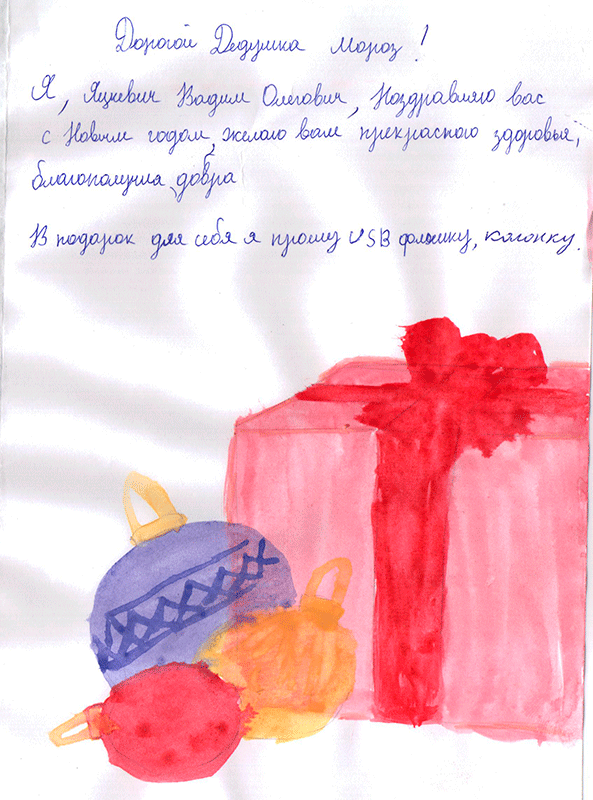 Дорогой Дедушка Мороз!
Я, Яцкевич Вадим Олегович, Поздравляю вас
с Новым годом, желаю вам прекрасного здоровья,
благополучия, добра
В подарок для себя я прошу USB флэшку, колонку.